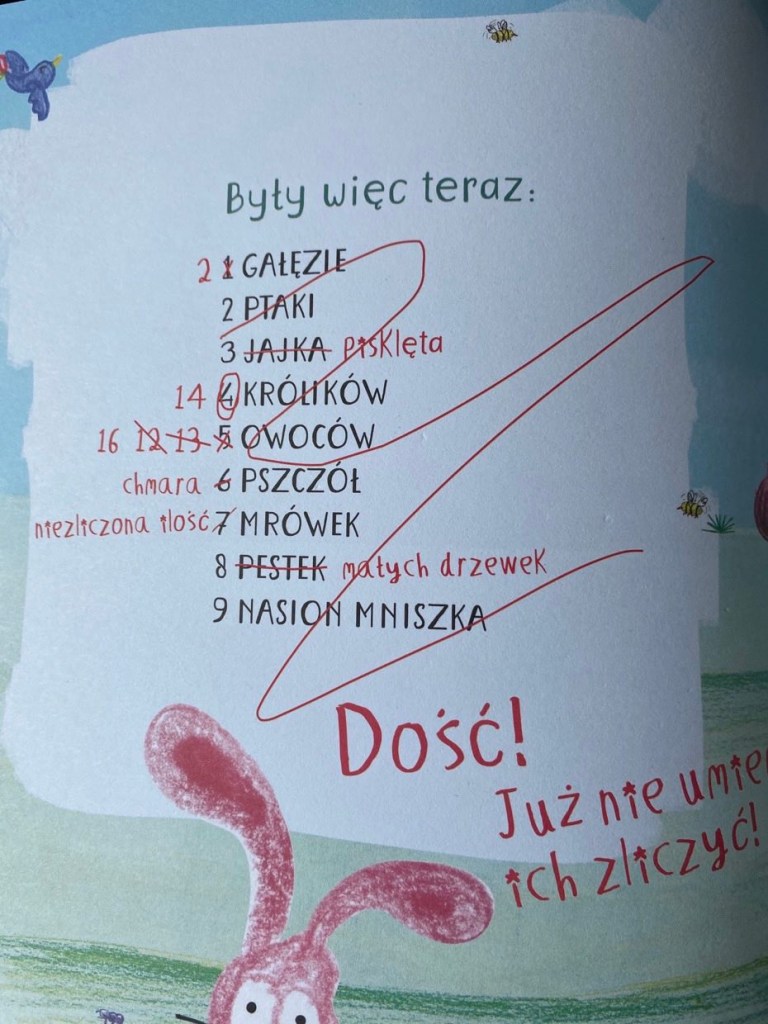 Były więc teraz:
2 1 GAŁĘZIE
2 PTAKI
3 JAJKA pisklęta
14 4 KRÓLIKÓW
16 12 13 5 OWOCÓW
chmara 6 PSZCZÓŁ
niezliczona ilość 7 MRÓWEK
8 PESTEK małych drzewek
9 NASION MNISZKA
Dość!
Już nie umie
ich zliczyć!